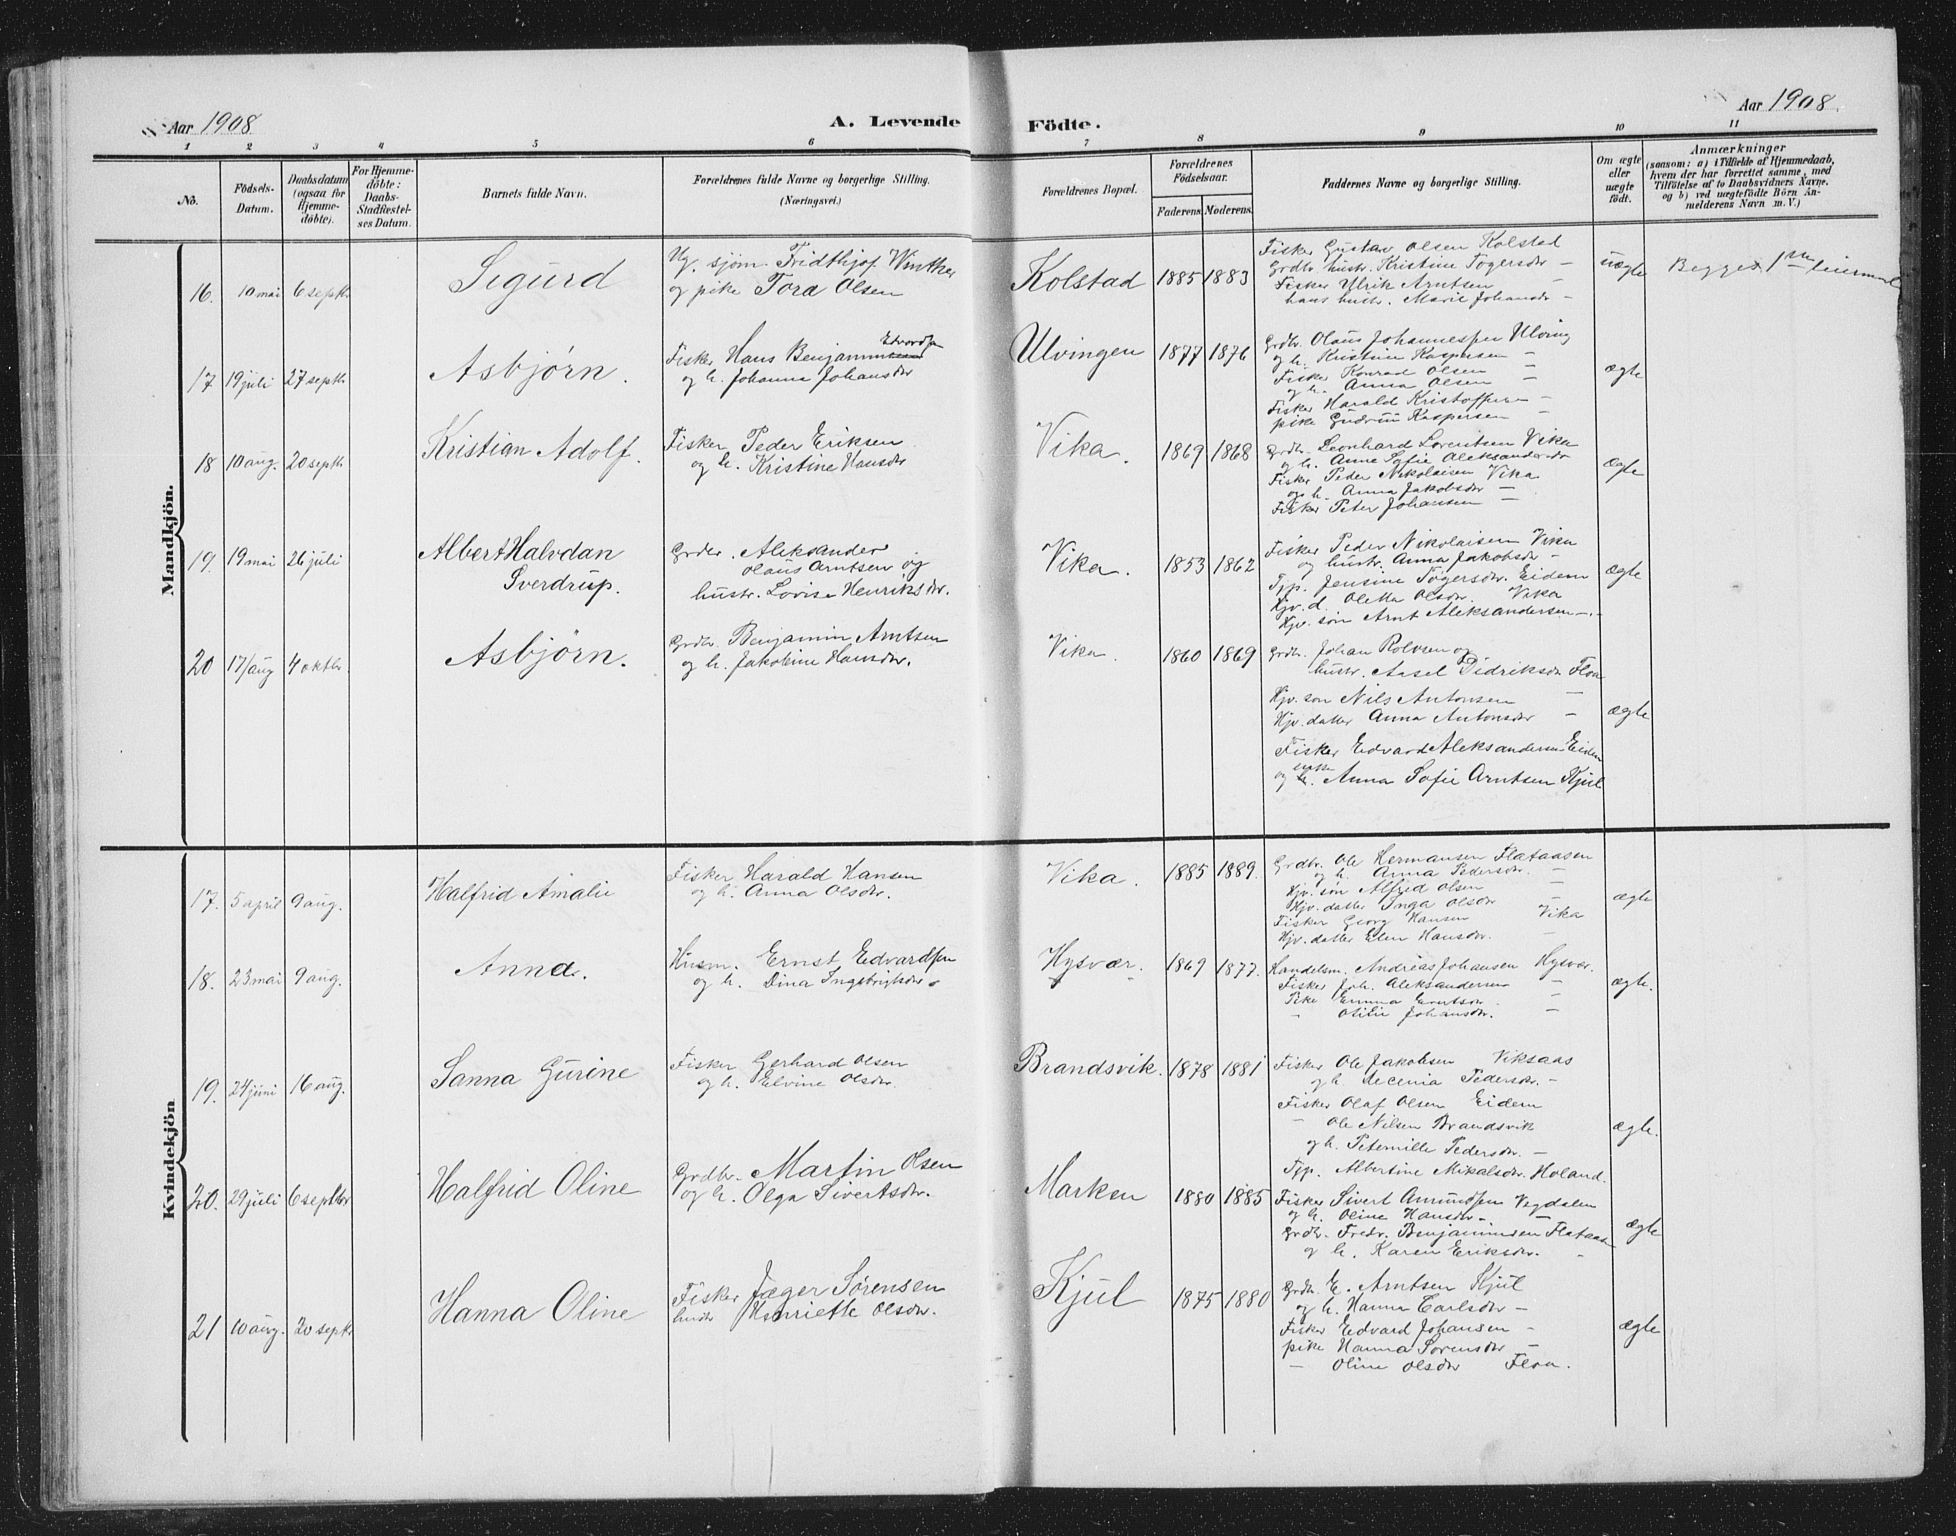 Aar 1908
A. Levende
Födte.
Aar 1908.
1 2 3 4 5 6 7 8 9 10 11
No.
Födsels-
Datum.
Daabsdatum
(ogsaa for
Hjemme-
döbte).
For Hjemme-
döbte:
Daabs-
Stadfæstel-
ses Datum.
Barnets fulde Navn.
Forældrenes fulde Navne og borgerlige Stilling.
(Næringsvei.)
Forældrenes Bopæl.
Forældrenes
Födselsaar.
Faderens
Moderens.
Faddernes Navne og borgerlige Stilling.
Om ægte
eller
uægte
födt.
Anmærkninger
(saasom: a) i Tilfælde af Hjemmedaab,
hvem der har forrettet samme, med
Tilföielse af to Daabsvidners Navne.
og b) ved uægtefödte Börn An-
melderens Navn m. V.)
Mandkjön.
16. 10 mai 6 septbr
Sigurd
Ug. sjøm. Fridthjof Winther
og pike Tora Olsen
Kolstad 1885 1883
Fisker Gustav Olsen Kolstad
Grdbr. hustr. Kristine Togersdr –
Fisker Ulrik Arntsen –
hans hustr. Marie Johansdr –
uægte
Begges 1ste leiermaal
17 19 juli 27 septbr
Asbjørn.
Fisker Hans Benjaminsen Edvardsen
og h. Johanna Johansdr
Ulvingen 1877 1876
Grdbr. Olaus Johannessen Ulving
og h. Kristine Kaspersen –
Fisker Konrad Olsen –
og h. Anna Olsen –
Fisker Harald Kristoffersen –
pike Gudrun Kaspersen –
ægte
18 10 aug. 20 septbr
Kristian Adolf.
Fisker Peder Eriksen
og h. Kristine Hansdr
Vika. 1869 1868
Grdbr. Leonhard Lorentsen Vika
og h. Anne Sofie Aleksandersdr
Fisker Peder Nikolaisen Vika
og h. Anna Jakobsdr –
Fisker Peter Johansen –
ægte
19. 19 mai 26 juli
Albert Halvdan
Sverdrup.
Grdbr. Aleksander
Olaus Arntsen og
hustr. Lovise Henriksdr.
Vika. 1853 1862
Fisker Peder Nikolaisen Vika
og hustr. Anna Jakobsdr –
Tjp. Jensine Togersdr. Eidem
Gjv. d. Oletta Olsdr. Vika
Gjv. søn Arnt Aleksandersen –
ægte
20 17/aug 4 oktbr
Asbjørn.
Grdbr. Benjamin Arntsen
og h. Jakobine Hansdr.
Vika 1860 1869
Grdbr. Johan Rolvsen og
hustr. Aasel Didriksdr Floa
Gjv. søn Nils Antonsen –
Gjv. datter Anna Antonsdr –
Fisker Edvard Aleksandersen Eidem
og pike Anna Sofie Arntsen Kjul
ægte
Kvindekjön
17. 5 april 9 aug.
Halfrid Amalie
Fisker Harald Hansen
og h. Anna Olsdr.
Vika. 1885 1889.
Grdbr. Ole Hermansen Flataasen
og h. Anna Pedersdr. –
Gjv. søn Alfred Olsen –
Gjv. datter Inga Olsdr –
Fisker Georg Hansen Vika
Gjv. datter Elen Hansdr. –
ægte
18. 23 mai 9 aug.
Anna.
Husm. Ernst Edvardsen
og h. Dina Ingebrigtsdr.
Hysvær. 1869 1877.
Handelsm. Andreas Johansen Hysvær.
Fisker Joh. Aleksandersen –
Pike Emma Erntsdr. –
– Otilie Johansdr. –
ægte.
19. 24 juni 16 aug.
Sanna Gurine
Fisker Gerhard Olsen
og h. Elvine Olsdr.
Brandsvik. 1878 1881
Fisker Ole Jakobsen Viksaas
og h. Decenia Pedersdr. –
Fisker Olaf Olsen Eidem
– Ole Nilsen Brandsvik
og h. Petemille Pedersdr. –
Tjp. Albertine Mikalsdr. Holand.
ægte.
20. 29 juli 6 septbr
Halfrid Oline
Grdbr. Martin Olsen
og h. Olga Sivertsdr.
Marken 1880 1885
Fisker Sivert Amundsen Vegdalen
og h. Oline Hansdr. –
Grdbr. Fredr. Benjaminsen Flataas
og h. Karen Eriksdr. –
ægte
21 10 aug. 20 septbr
Hanna Oline
Fisker Jæger Sørensen
hustr Henriette Olsdr.
Kjul 1875 1880
Grdbr. E. Arntsen Kjul
og h. Hanna Carlsdr –
Fisker Edvard Johansen –
pike Hanna Sørensdr –
– Oline Olsdr Floa.
ægte